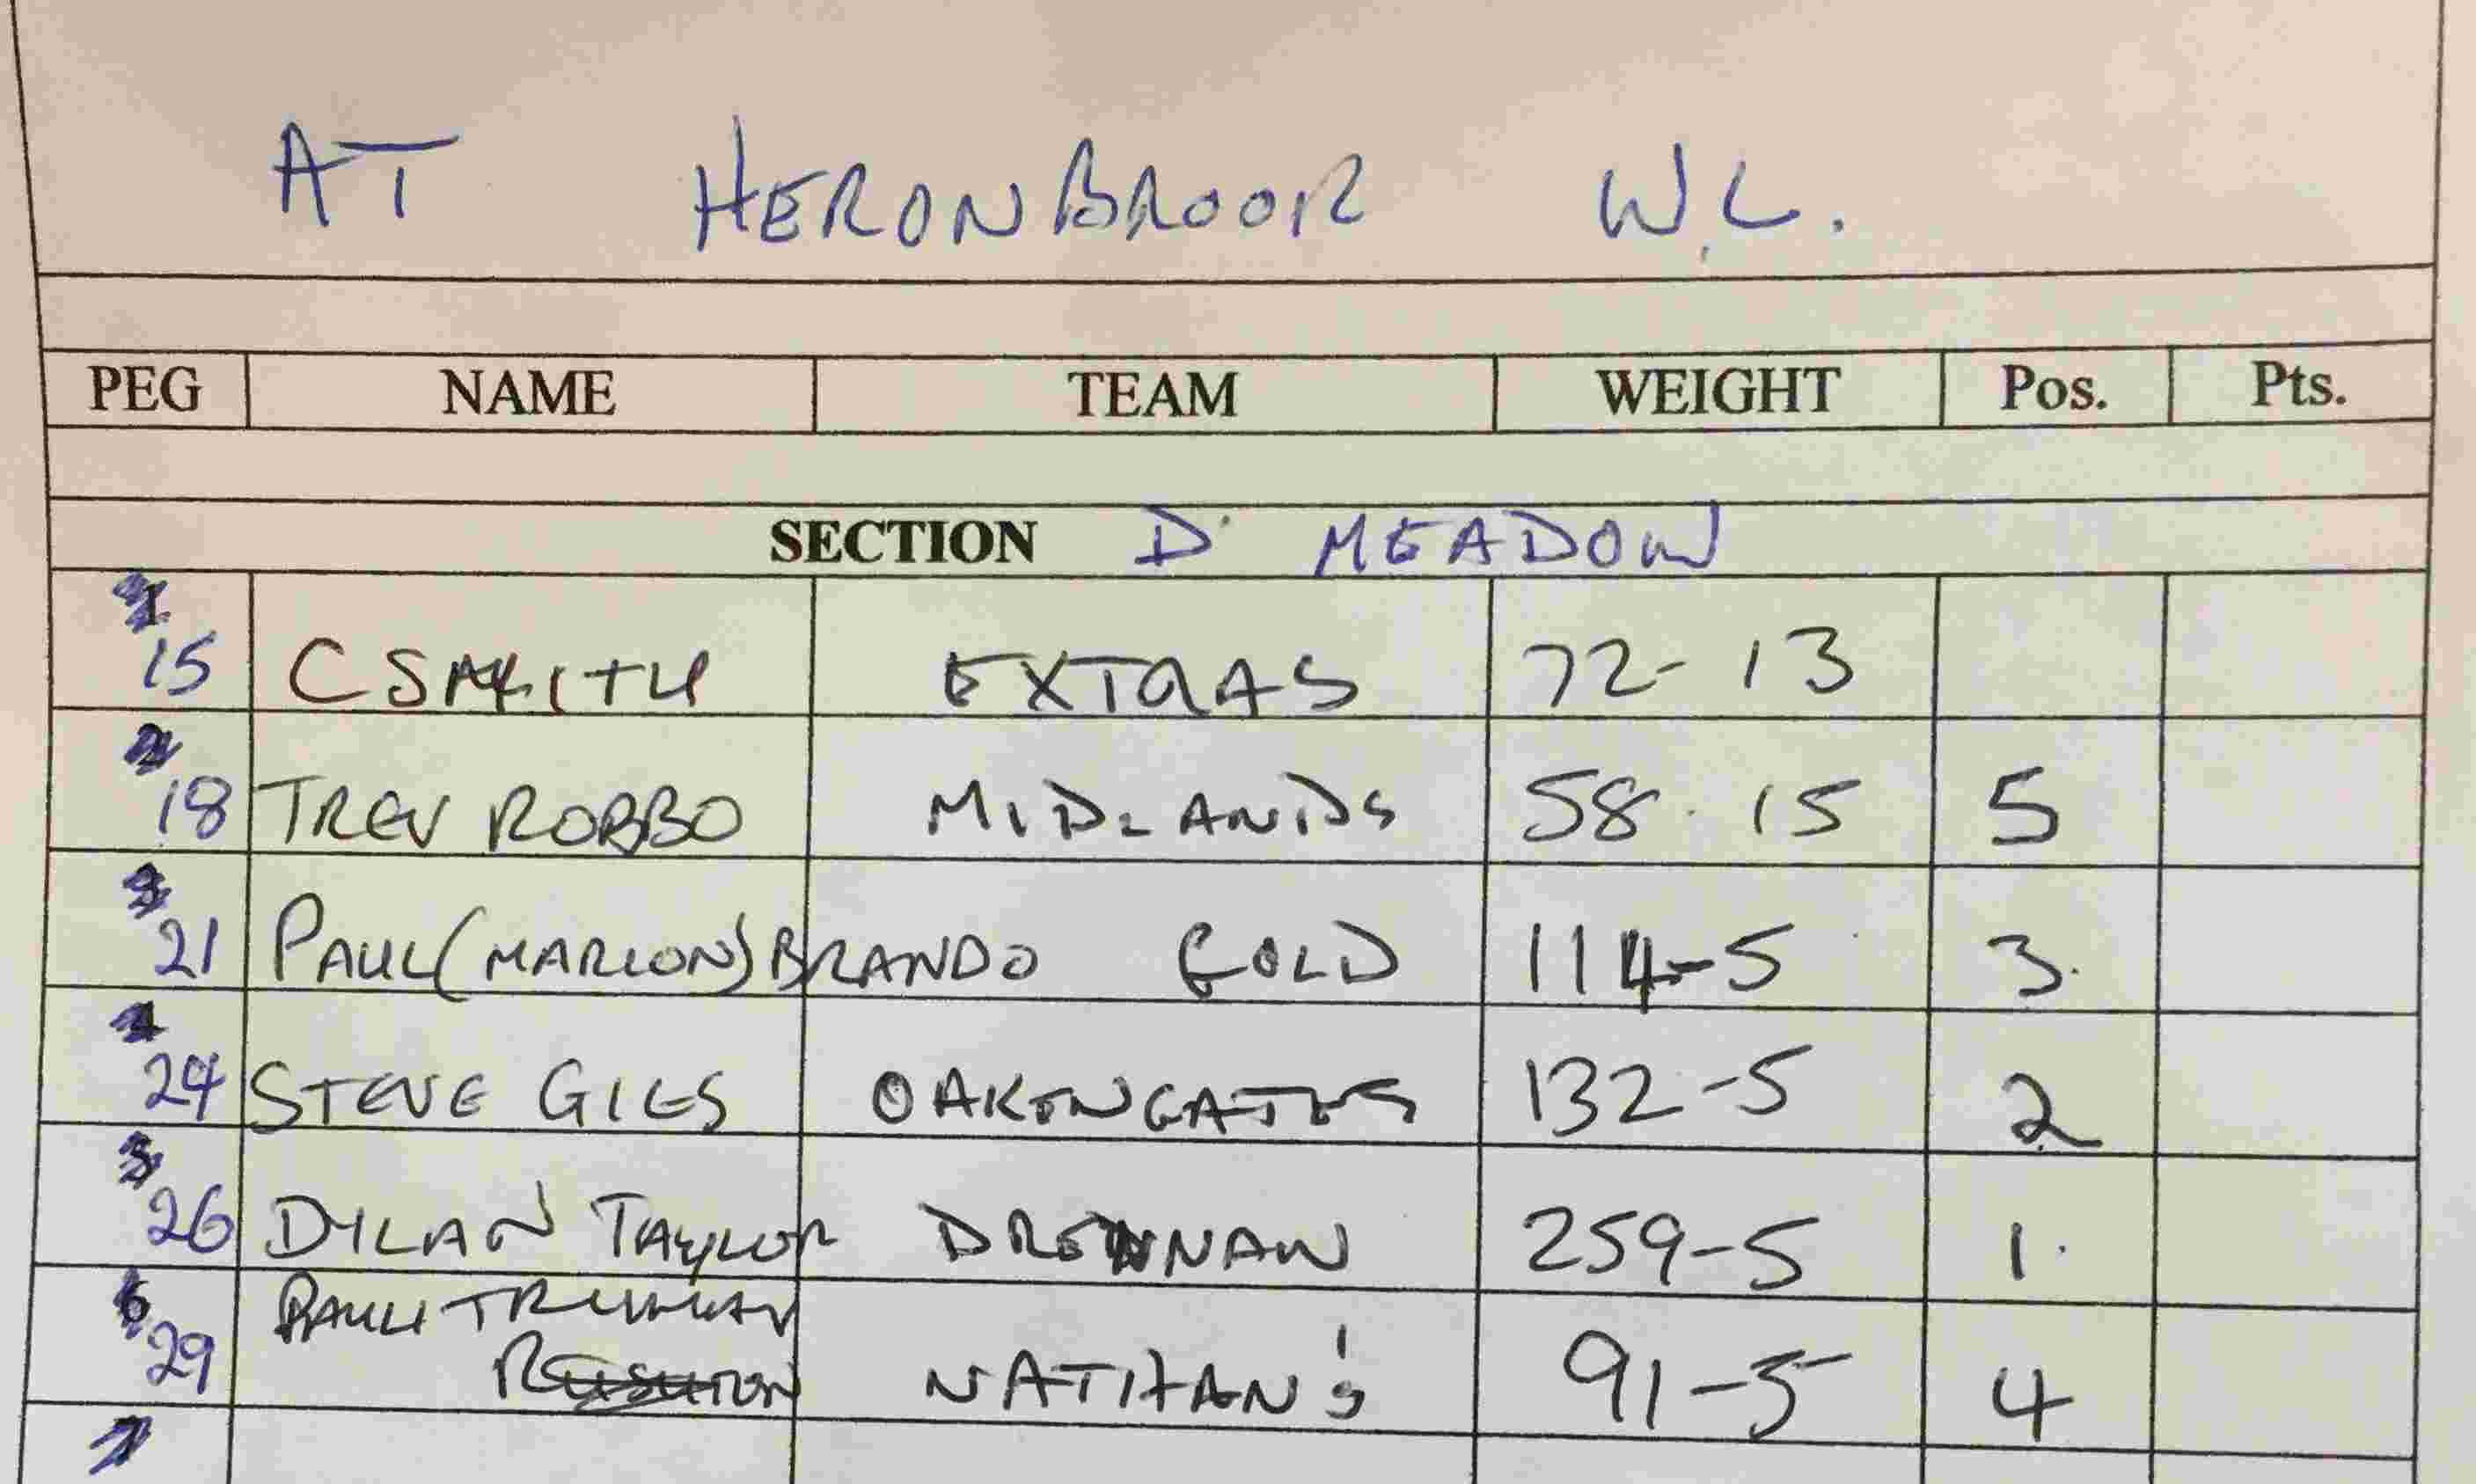 AT HERONBROOK W.L.
PEG NAME TEAM WEIGHT Pos. Pts.
SECTION D MEADOW
1
15 C SMITH EXTRAS 72-13
2
18 TREV ROBBO MIDLANDS 58-15 5
3
21 PAUL (MARLON) BRANDO GOLD 114-5 3
4
24 STEVE GILES OAKENGATES 132-5 2
5
26 DYLAN TAYLOR DRENNAN 259-5 1
6
PAUL
29 NATHAN'S 91-5 4
7